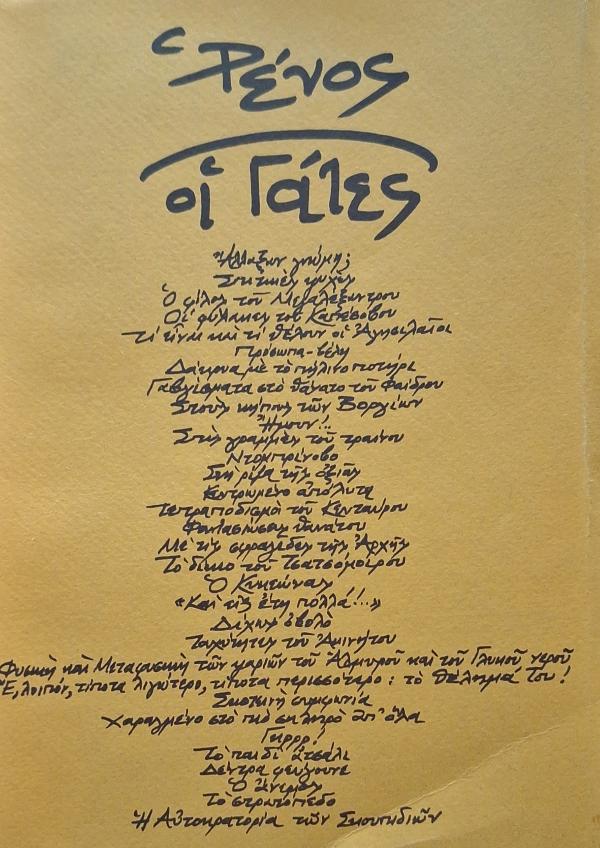 Ῥένος
οἱ Γάτες
Ἀλλάξαν γνώμη;
Σπιτικὲς ψυχὲς
Ὁ φίλος τοῦ Μεγαλέξαντρου
Οἱ φύλακες τοῦ Καπέσοβου
Τί εἶναι καὶ τί θέλουν οἱ Ἀγησιλαῖοι
Πρόσωπα-βέλη
Δάκρυα μὲ τὸ πήλινο ποτήρι
Γαβγίσματα στὸ θάνατο τοῦ Φαίδρου
Στοὺς κήπους τῶν Βοργίων
Ἤμουν!..
Στὶς γραμμὲς τοῦ τραίνου
Ντομπρίνοβο
Στὴ ρίζα τῆς ὀξιᾶς
Κεντρωμένο ἀπόλυτα
Τετραποδισμοὶ τοῦ Κενταύρου
θανάτου
Μὲ τὶς τῆς Ἀρχῆς
Τὸ δίκιο τοῦ Τσατσόμοιρου
Ὁ
«Καὶ εἰς ἔτη πολλά!...»
Δίχως ὀβολὸ
Ταχύτητες τοῦ Ἀκινήτου
Φυσικὴ καὶ Μεταφυσικὴ τῶν ψαριῶν τοῦ Ἁλμυροῦ καὶ τοῦ Γλυκοῦ νεροῦ
Ἔ, λοιπόν, τίποτα λιγώτερο, τίποτα περισσότερο: τὸ θέλημά Του!
συμφωνία
Χαραγμένο στὸ πιὸ σκληρὸ ἀπ' ὅλα
Γκρρρ!
Τὸ παιδὶ ἀτσάλι
Δέντρα φεύγουνε
Ὁ ἄνεμος
Τὸ στρατόπεδο
Ἡ Αὐτοκρατορία τῶν Σκουπιδιῶν